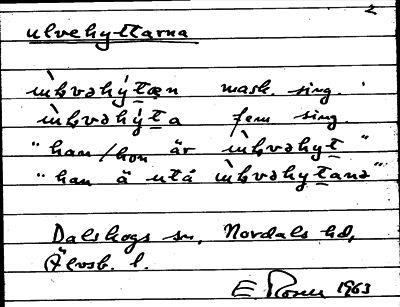 2
ulvehyttarna
ẁḷvəhýt̲æn mask. sing.
ẁḷvəhýt̲a fem sing.
"han/hon är ẁḷvəhyt̲"
"han ä utå ẁḷvəhyt̲anə"
Dalskogs sn, Nordals hd,
Älvsb. l.
E. 1963